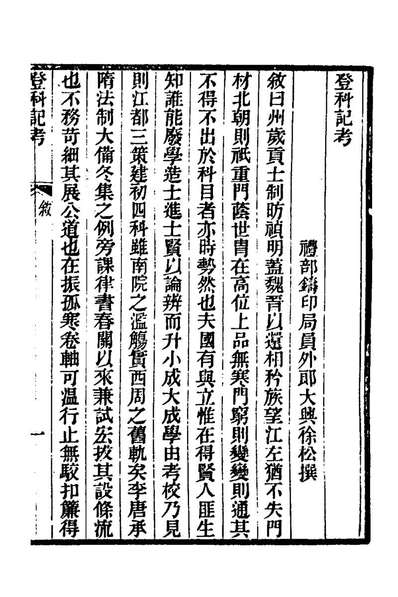 登科記考
禮部鑄印局員外郎大興徐松撰
敘曰州歲貢士制昉禎明蓋魏晉以還相矜族望江左猶不失門
材北朝則祇重門蔭世冑在高位上品無寒門窮則變變則通其
不得不出於科目者亦時勢然也夫國有與立惟在得賢人匪生
知誰能廢學造士進士賢以論辨而升小成大成學由考校乃見
則江都三策建初四科雖南院之濫觴實西周之舊軌矣李唐承
隋法制大備冬集之例旁課律書春關以來兼試宏拔其設條流
也不務苛細其展公道也在振孤寒卷軸可溫行止無駮扣簾得
登科記考
敘
一